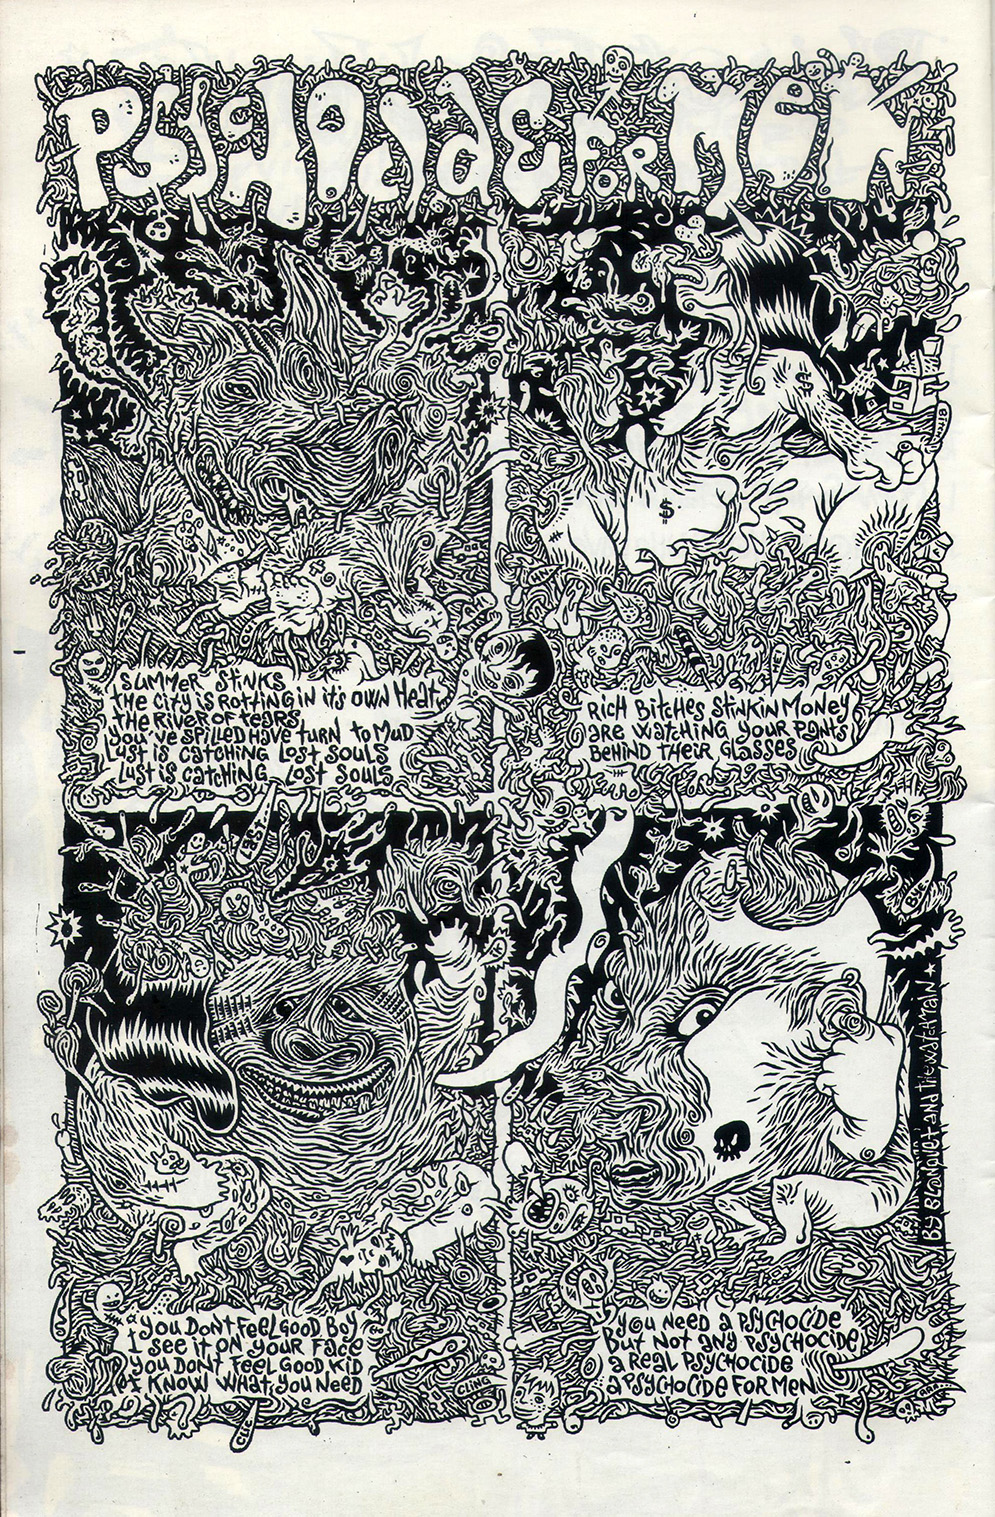 PSYCHOCIDE FOR MEN
SUMMER STINKS
THE CITY IS ROTTING IN IT'S OWN HEAT
THE RIVER OF TEARS
YOU'VE SPILLED HAVE TURN TO MUD
LUST IS CATCHING LOST SOULS
LUST IS CATCHING LOST SOULS
$
RICH BITCHES STINKIN MONEY
ARE WATCHING YOUR PANTS
BEHIND THEIR GLASSES
YOU DON'T FEEL GOOD BOY
I SEE IT ON YOUR FACE
YOU DON'T FEEL GOOD KID
I KNOW WHAT YOU NEED
CLING
YOU NEED A PSYCHOCIDE
BUT NOT ANY PSYCHOCIDE
A REAL PSYCHOCIDE
A PSYCHOCIDE FOR MEN